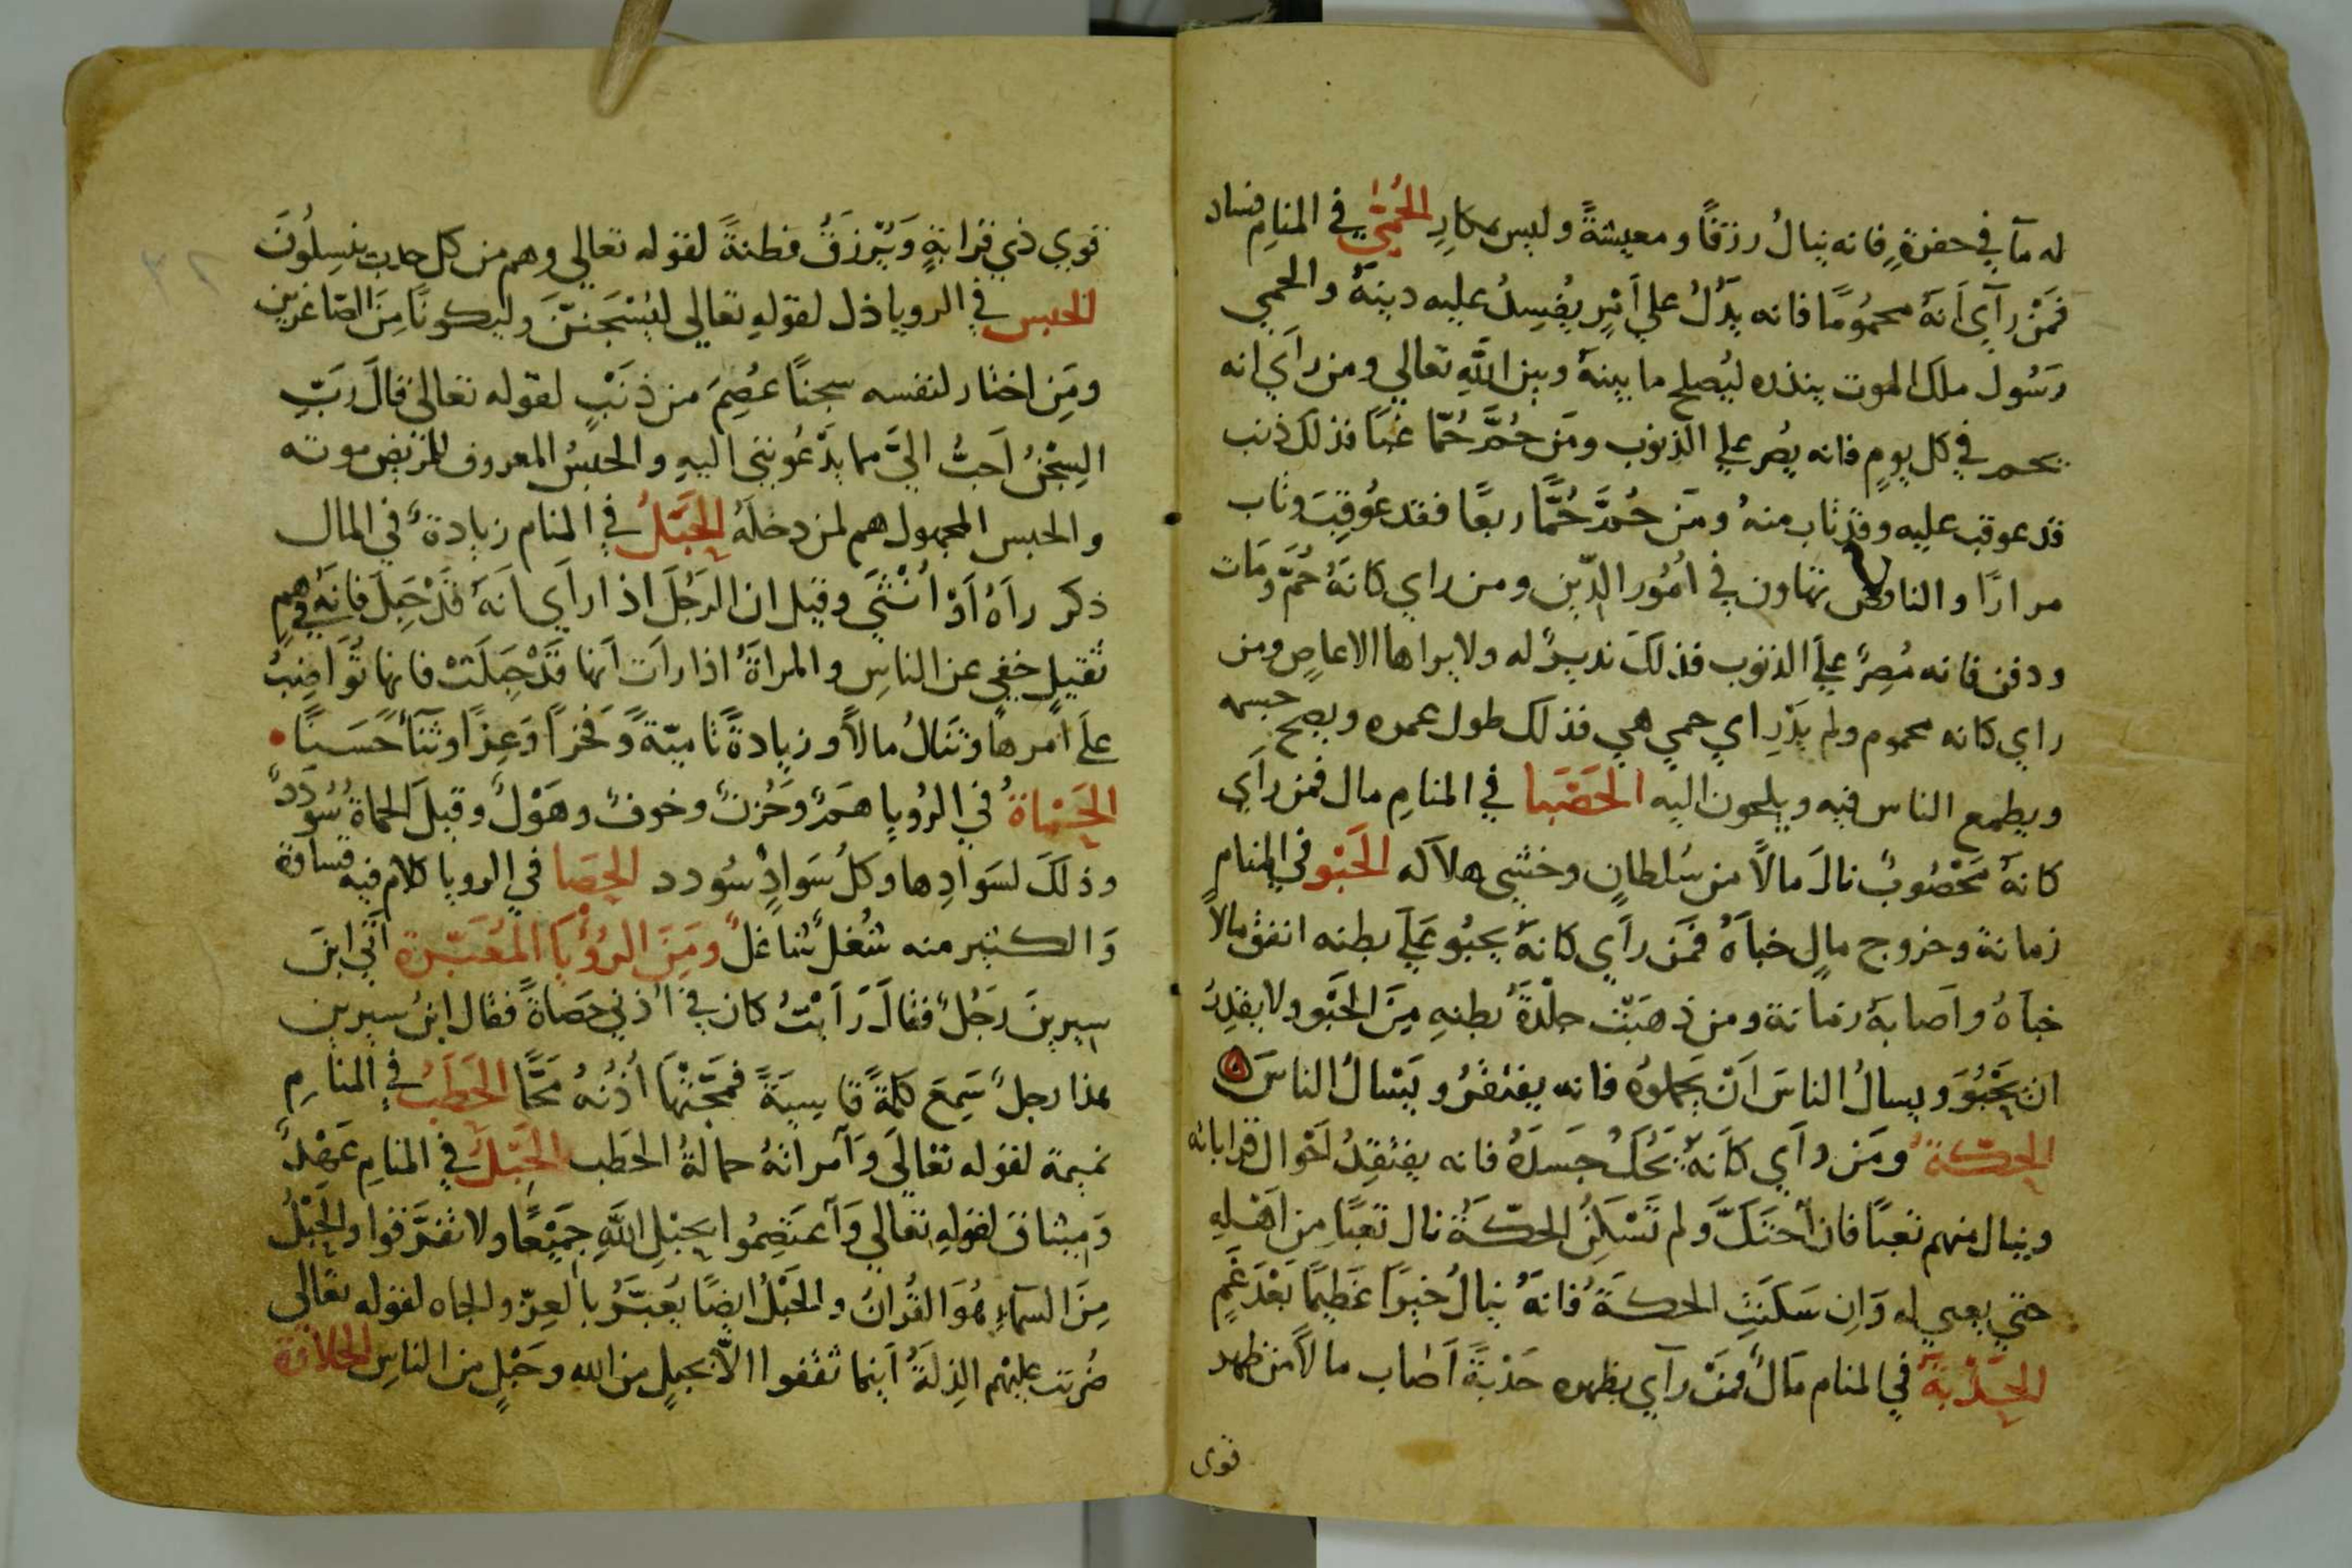 له مآ في حفرةٍ فانه ينالُ رزقًا ومعيشةً وليس بمكارٍ الحُمّٰي في المنامِ فساد
فمَنْ رآي اَنهُ محمُومًا فانه يَدُلُ علي اَمْرٍ يُفسِدُ عليه دينهُ والحمي
رَسُول ملك الموت ينذره ليُصلح ما بينهُ وبين اللَّهِ تعالي ومن رآي انه
يحمر في كل يومٍ فانه يُصر علي الذنوب ومَن حُمَّ حُمّا غبًا فذلك ذنب
قد عوقب عليه وقد تاب منهُ ومَن حُمَّ حُمًّا ربعًا فقد عُوقِبَ وتاب
مرارًا والنافض تهاون في اُمُور الدّين ومن راي كانهُ حُمَّ ومَات
ودفن فانه مُصِرٌ عليَ الذنوب فذلكَ نديرٌ له ولا يراها الا عاصٍ ومن
راي كانه محموم ولم يَدْرِ اي حمي هي فذلك طول عمره ويصح جسمه
ويطمع الناس فيه ويلجون اليه الحَصْبا في المنامِ مال فمن رآي
كانهُ مَحْصُوبٌ نالَ مالاً من سُلطانٍ وخشي هلاكه الحَبْو في المنام
زمانة وخروج مالٍ خباَهُ فمَن رآي كانهُ يحبُو عَليَ بطنه انفق مالاً
خبآهُ واَصابهُ زمانة ومن ذهَبَتْ جلْدةُ بطنهِ مِنَ الحَبْو ولا يقدِرُ
ان يَحْبُوَ ويسالُ الناسَ اَنْ يَحملوهُ فانه يفتقرُ ويَسْالُ الناسَ
الحِكّة ومَن رآي كانهُ يَحُكُ جَسَدَهُ فانه يفتقِدُ اَحْوال قراباته
وينال منهم تعبًا فان احْتَكَّ ولم تَسْكُن الحكّة نال تعبًا مِن اَهْلِهِ
حتي يعيي له وَاِن سَكَنَتِ الحكة فانهُ ينالُ خيرًا عَظيمًا بَعْدَ غَمٍ
الحَدْبَة في المنام مَالٌ فمَنْ رآي بظهره حَدْبَةً اَصاب مالاً من ظهر
قوى
قوي ذي قرابةٍ وَيُرْزَقُ فطنةً لقوله تعالي وهم من كل حدبٍ ينسِلُونَ
الحبس في الرويا ذل لقولهِ تعالي ليُسْجَننَّ وليكونًا مِنَ الصّاغرين
ومَنِ اختار لنفسه سجنًا عُصِمَ من ذنَبٍ لقوله تعالي قالَ رَبّ
السِجْنُ اَحبُّ اليَّ مما يَدْعُونني اليهِ والحبسُ المعروف للمَريض موته
والحبس المجهول هم لمن دخلَهُ الحَبَلُ في المنام زيادةٌ في المال
ذكر رآهُ اَوْ اُنْثيَ وقيل ان الرَجُلَ اذا رآي اَنهُ قَدْ حَبِلَ فانهُ في همٍ
ثقيلٍ خفيٍ عن الناسِ والمراةُ اذا رات اَنها قَدْ حَبِلَتْ فانها تُوَاضِبُ
عليَ امرها وتَنالُ مالاً وزيادةً ناميّةً وَفخرًا وعِزًا وثَنَآءً حَسَنًا
الحَماة في الرُويا هَمٌ وحُزنٌ وخوفٌ وهَوْلٌ وقيلَ الحماةُ سُودَدٌ
وذلكَ لسَوادِها وكلُ سَوادٍ سُودد الحصَا في الرويا كلام فيه قساوة
وَالكثير منه شُغلٌ شاغلٌ ومِنَ الرُؤْيَا المُعَبَّرة اَتي ابنَ
سيرينَ رَجُلٌ فقالَ رَاَيْتُ كان في اُذني حَصَاةً فقال ابنُ سيرين
هذا رجلٌ سَمِعَ كلمةً قاسِيَةً فمَجَّتْهَا اُذُنهُ مَجًّا الحَطَبُ في المنامِ
نميمة لقوله تعالَي وَاَمراتهُ حمالةُ الحَطب الحَبْلُ في المنامِ عَهْدٌ
وَميثاق لقولهِ تعالي وَآعتَصِمُوا بحَبْلِ اللَّهِ جَمِيْعًا ولا تفَرَّقوا والحَبْلُ
مِنَ السمآءِ هُوَ القُرانُ والحَبْلُ ايضًا يُعَبَّرُ بالعِزّ والجاه لقوله تعالي
ضُربت عليْهم الذِلةُ اَينما ثقفوا الاّ بحبلٍ من الله وحَبْلٍ من الناسِ الحلاقة